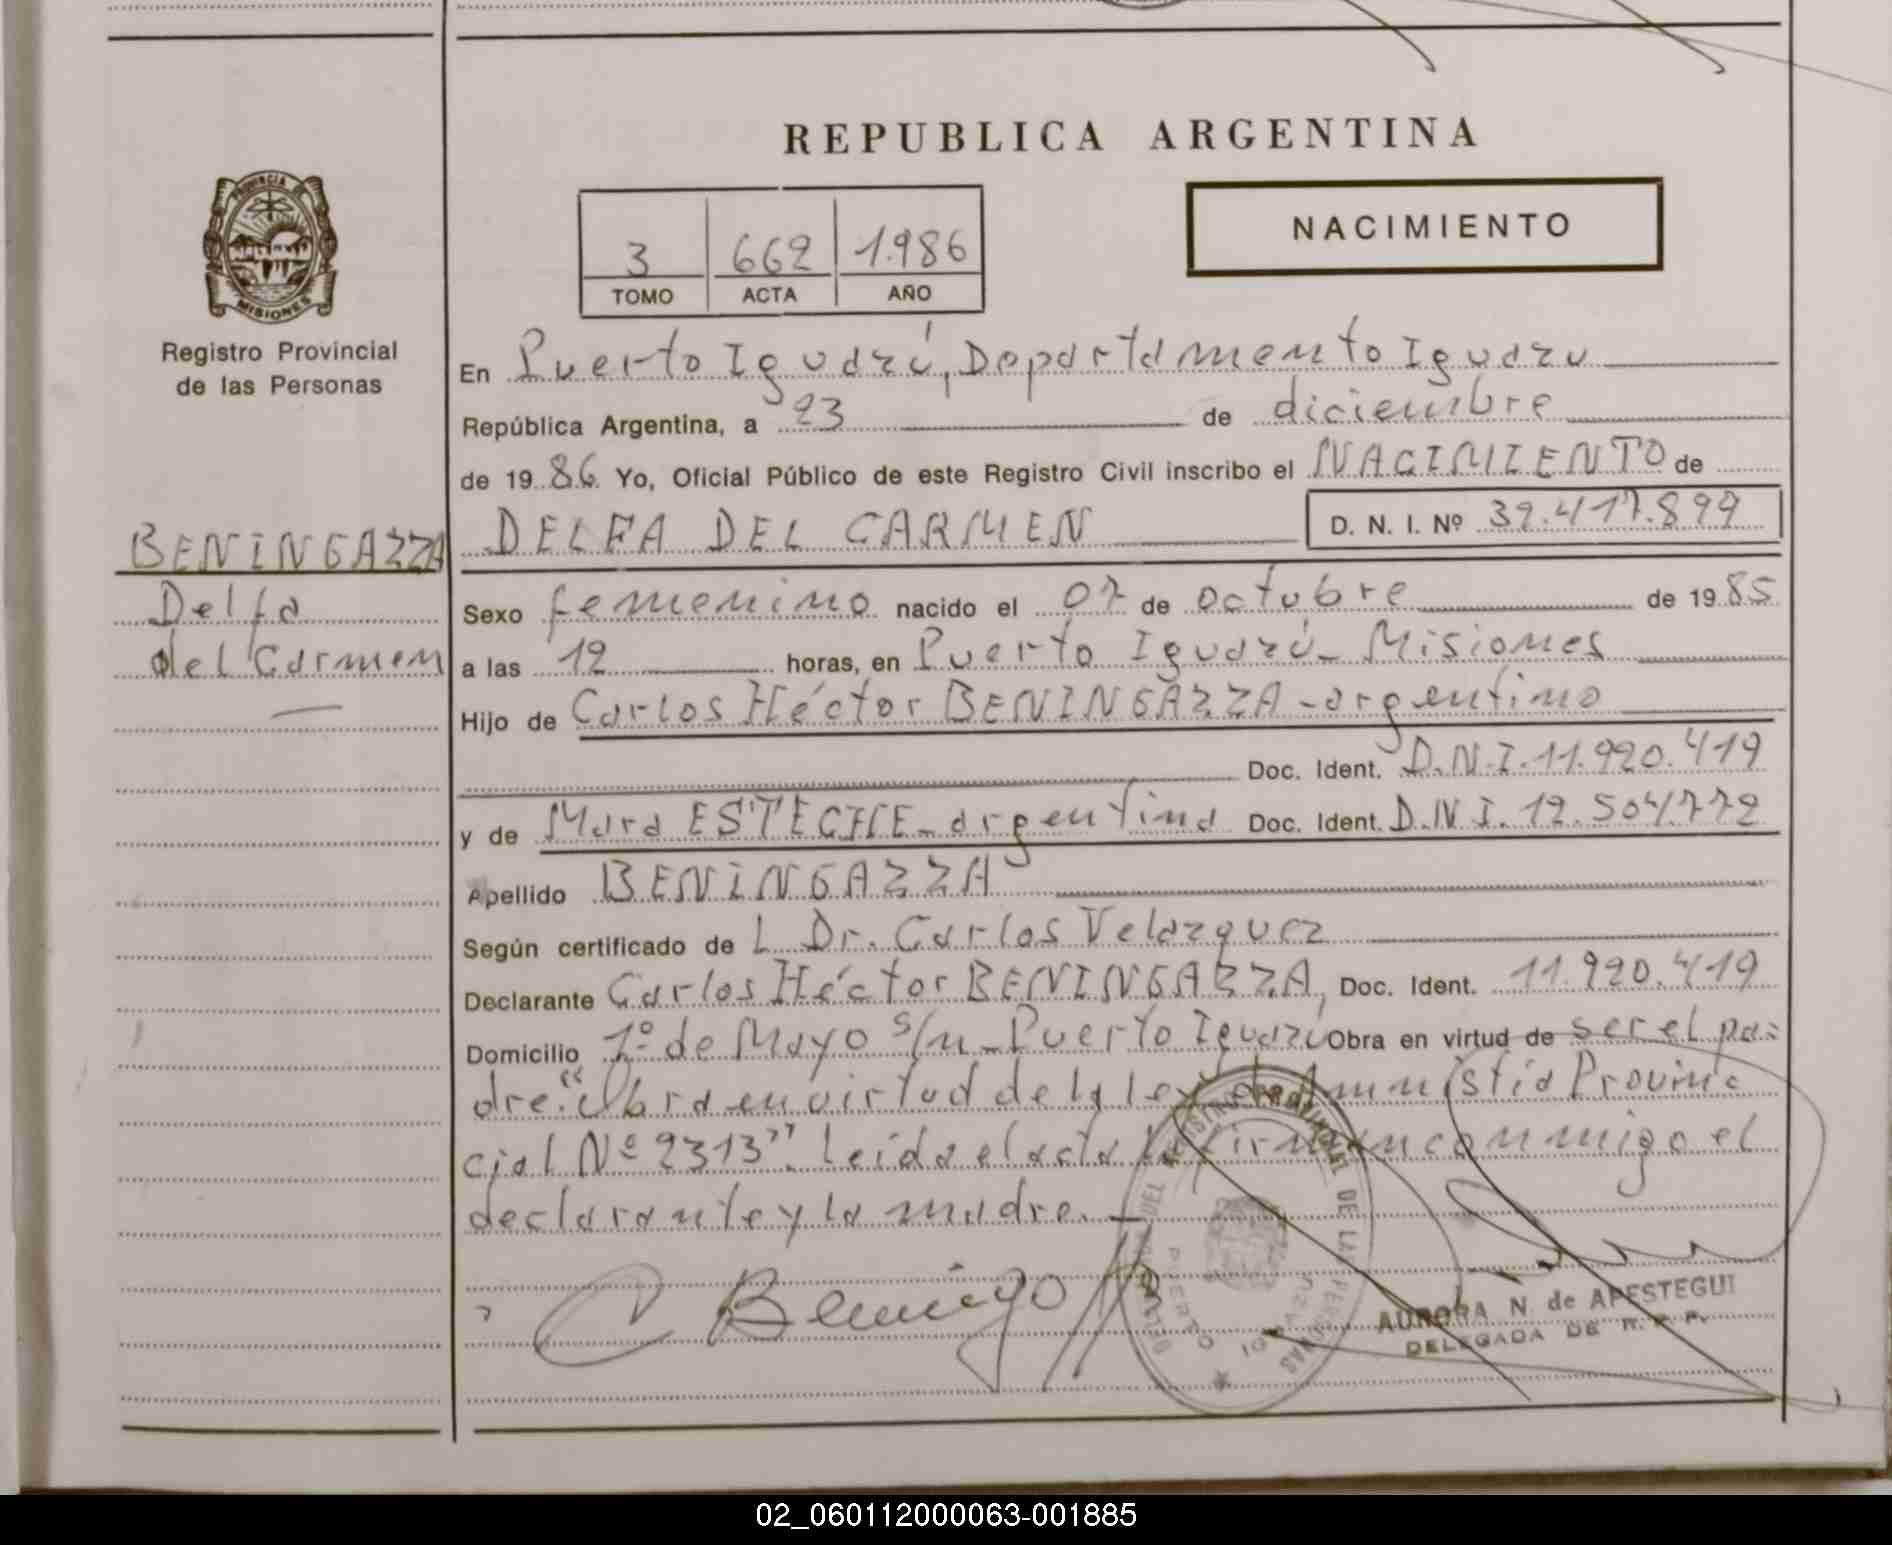 REPUBLICA ARGENTINA
PROVINCIA DE
MISIONES
Registro Provincial
de las Personas
NACIMIENTO
3 662 1.986
TOMO ACTA AÑO
En Puerto Iguazú, Departamento Iguazu
República Argentina, a 23 de diciembre
de 19 86 Yo, Oficial Público de este Registro Civil inscribo el NACIMIENTO de
DELFA DEL CARMEN D. N. I. Nº 32.417.899
BENINGAZZA
Delfa
del Carmen
Sexo femenino nacido el 07 de octubre de 19 85
a las 12 horas, en Puerto Iguazú - Misiones
Hijo de Carlos Héctor BENINGAZZA - argentino
Doc. Ident. D.N.I. 11.920.419
y de Mara ESTECHE - argentina Doc. Ident. D.N.I. 12.504.772
Apellido BENINGAZZA
Según certificado de L Dr. Carlos Velazquez
Declarante Carlos Héctor BENINGAZZA, Doc. Ident. 11.920.419
Domicilio 1º de Mayo s/n - Puerto Iguazú Obra en virtud de ser el pa-
dre. "Obra en virtud de la ley de Amnistía Provin-
cial Nº 2313". Leída el acta la firman conmigo el
declarante y la madre. -
AURORA N. de APESTEGUI
DELEGADA DE R. P. P.
02_060112000063-001885